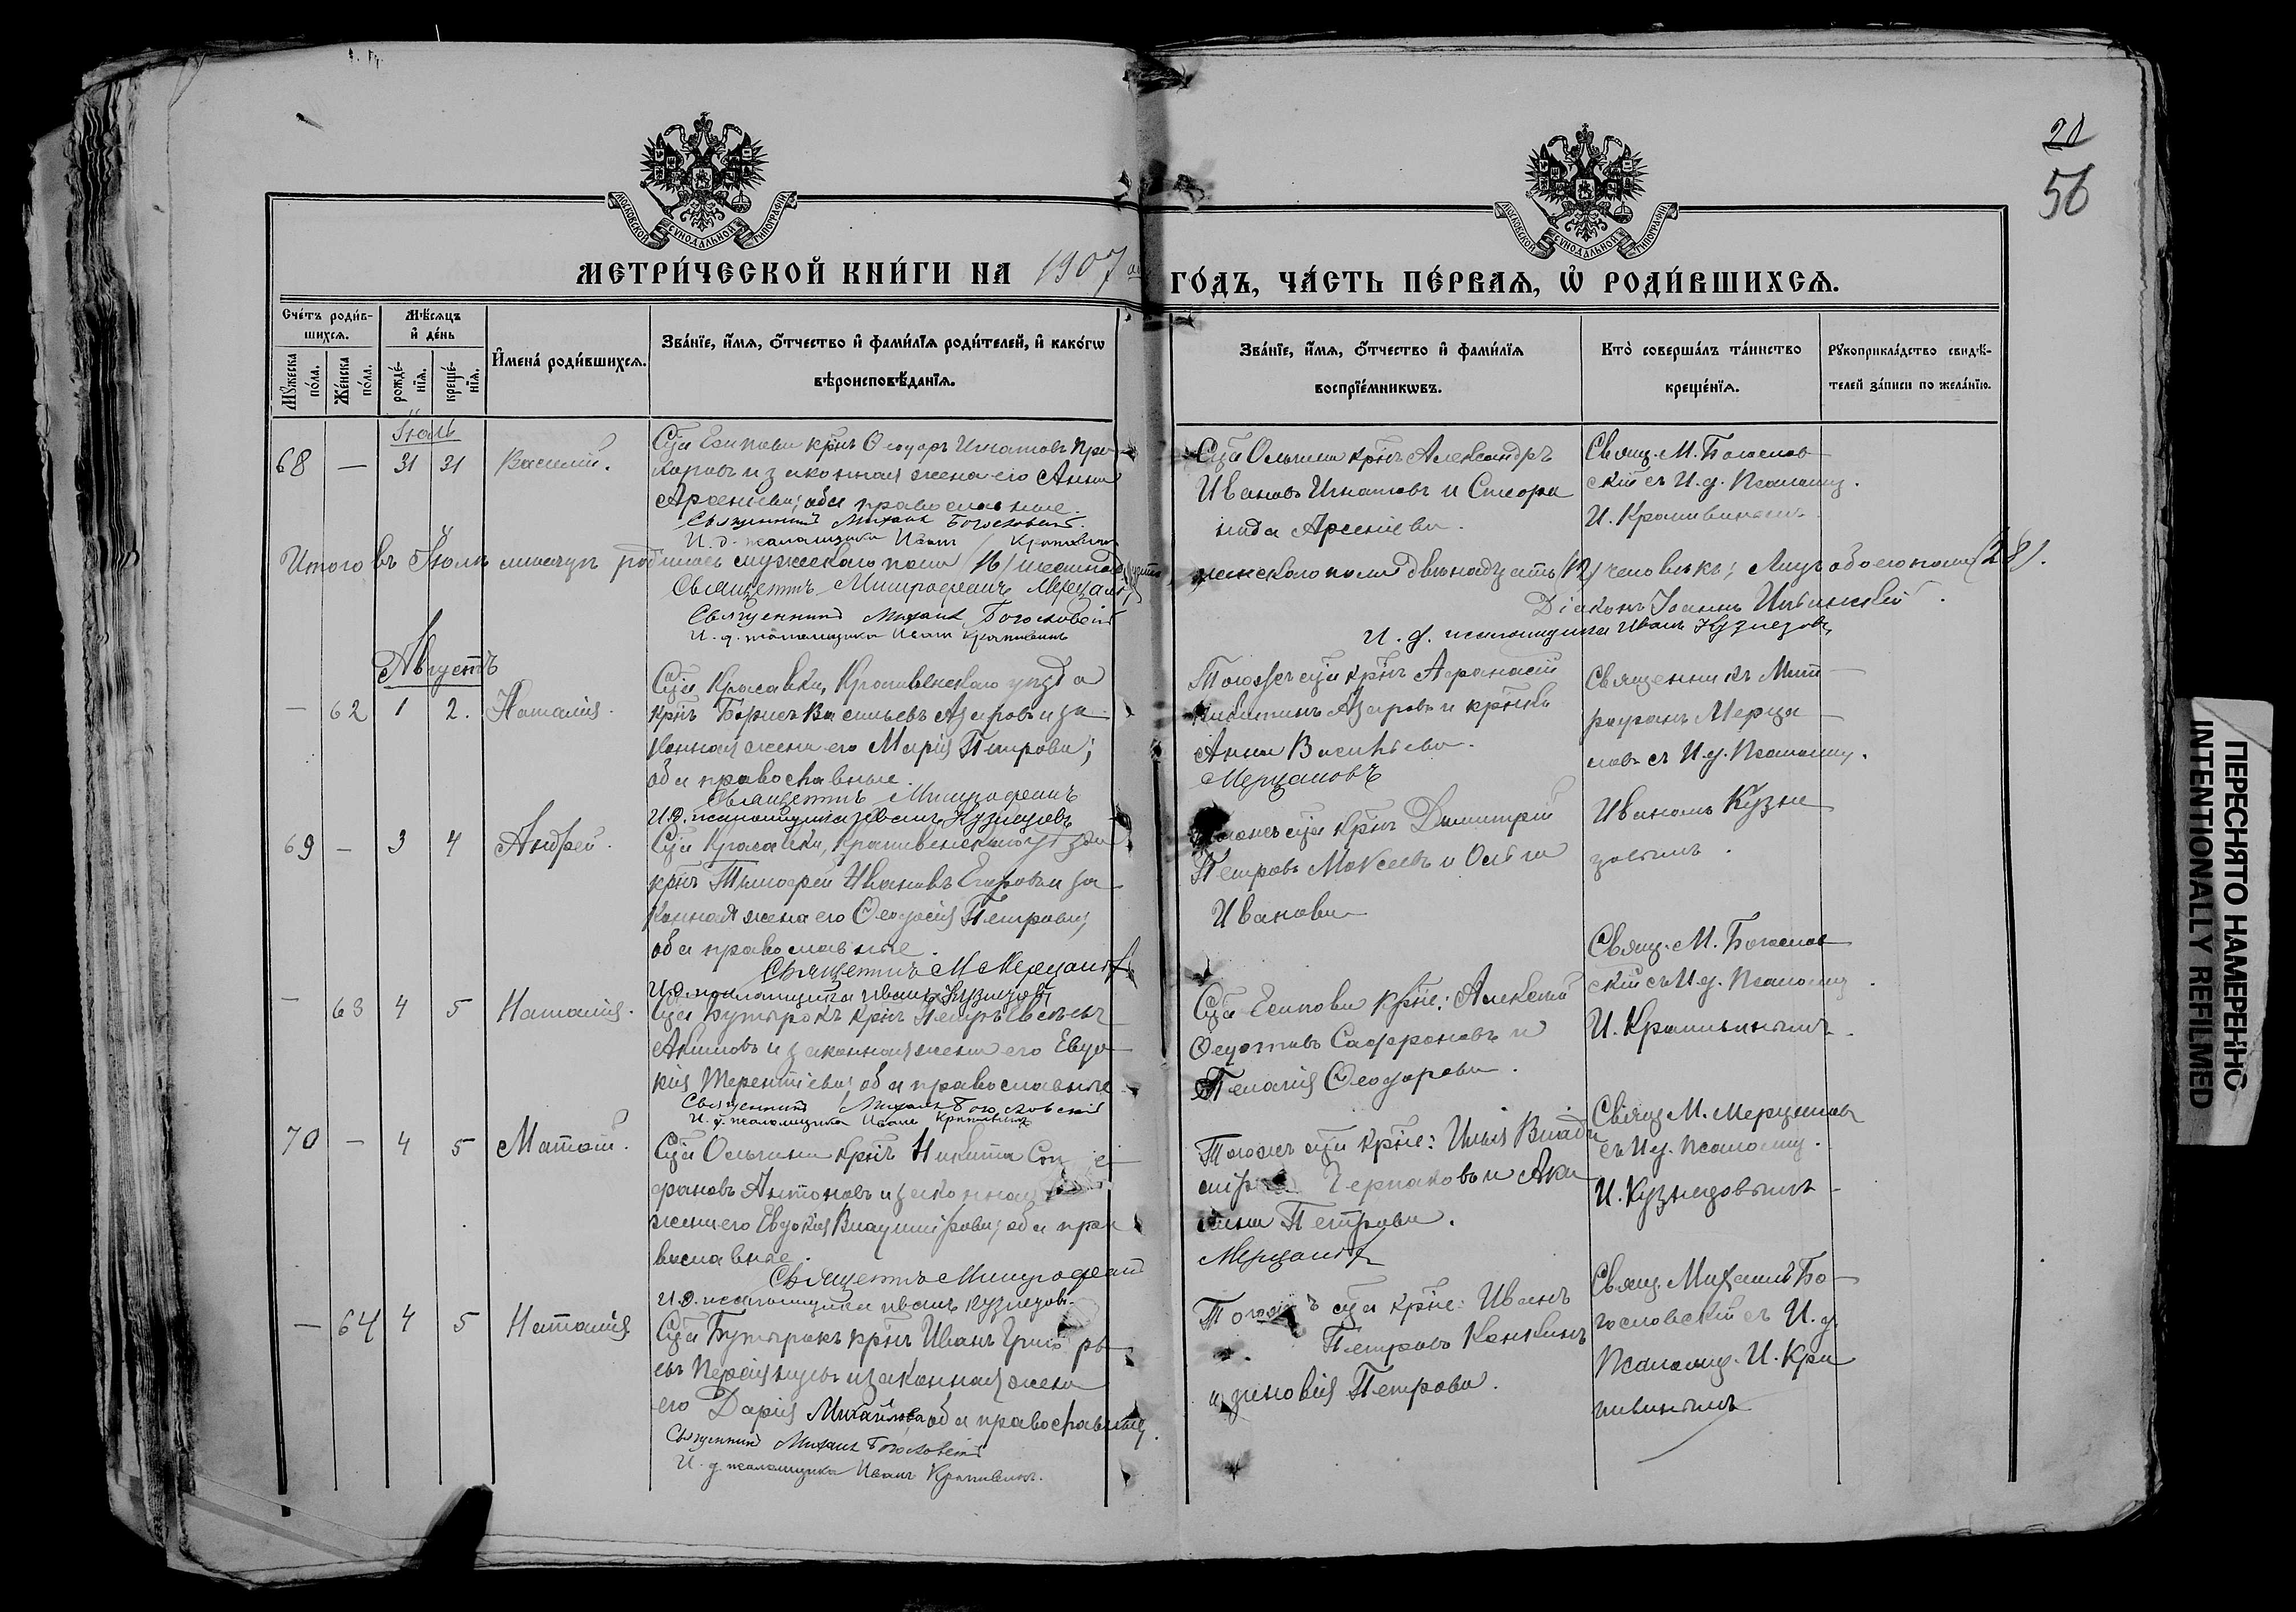 21
56
МОСКОВСКОЙ СѴНОДАЛЬНОЙ ТИПОГРАФІИ
МОСКОВСКОЙ СѴНОДАЛЬНОЙ ТИПОГРАФІИ
МЕТРИ́ЧЕСКОЙ КНИ́ГИ НА 1907 ГО́ДЪ, ЧА́СТЬ ПЕ́РВАѦ, Ѡ҆ РОДИ́ВШИХСѦ.
Сче́тъ роди́в-
шихсѧ.
Мꙋ́жеска по́ла.
Же́нска по́ла.
Мѣ́сѧцъ
и҆ де́нь
рожде́-нїѧ.
креще́-нїѧ.
И҆мена̀ роди́вшихсѧ.
Зва́нїе, и҆́мѧ, ѻ҆́тчество и҆ фами́лїѧ роди́телей, и҆ како́гѡ
вѣроисповѣ́данїѧ.
Зва́нїе, и҆́мѧ, ѻ҆́тчество и҆ фами́лїѧ
воспрїе́мникѡвъ.
Кто̀ соверша́лъ та́инство
креще́нїѧ.
Рꙋкоприкла́дство свидѣ́-
телей за́писи по жела́нїю.
Іюль
68 — 31 31 Василій.
Сца Есипова крнъ Ѳеодоръ Игнатовъ Про-
хоровъ и законная жена его Анна
Арсеніева; оба православные.
Священникъ Михаилъ Богословскій.
И. д. псаломщика Иванъ Крапивинъ
Сца Ольшина крнъ Александръ
Ивановъ Игнатовъ и Стефа
нида Арсеніева.
Свящ. М. Богослов-
скій съ И. д. Псаломщ.
И. Крапивинымъ
Итого въ Іюлѣ мѣсяцѣ родилось мужескаго пола (16) шестнадцать женскаго пола двѣнадцать (12) человѣкъ; Лицъ обоего пола (28).
Священникъ Митрофанъ Мерцаловъ
Діаконъ Іоаннъ Ильинскій
Священникъ Михаилъ Богословскій
И. д. псаломщика Иванъ Крапивинъ
И. д. псаломщика Иванъ Кузнецовъ
Августъ
— 62 1 2. Наталія.
Сца Красавки, Крапивенскаго уѣзда
крнъ Борисъ Васильевъ Азаровъ и за-
конная жена его Марія Петрова;
оба православные.
Священникъ Митрофанъ Мерцаловъ
И.д. псаломщика Иванъ Кузнецовъ
Тогожъ сца крнъ Афанасій
Никитинъ Азаровъ и крнка
Анна Васильева.
Священникъ Мит-
рофанъ Мерца-
ловъ съ И. д. Псаломщ.
Иваномъ Кузне-
цовымъ.
69 — 3 4 Андрей.
Сца Красавки, Крапивенскаго уѣзда
крнъ Тимофей Ивановъ Егоровъ и за-
конная жена его Ѳеодосія Петрова;
оба православные.
Священникъ М. Мерцаловъ
И.д. псаломщика Иванъ Кузнецовъ
Тогожъ сца крнъ Димитрій
Петровъ Мокеевъ и Ольга
Иванова
— 63 4 5 Наталія.
Сца Бутырокъ крнъ Петръ
Акимовъ и законная жена его Евдо-
кія Терентіева; оба православные
Священникъ Михаилъ Богословскій
И. д. псаломщика Иванъ Крапивинъ
Сца Есипова крне: Алексій
Ѳедотовъ Сафроновъ и
Пелагія Ѳеодорова.
Свящ. М. Богослов-
скій съ И.д. Псаломщ.
И. Крапивинымъ.
70 — 4 5 Матѳій.
Сца Ольшина крнъ Никита
фановъ Антоновъ и законная
жена его Евдокія Владимірова; оба пра-
вославные.
Священникъ Митрофанъ Мерцаловъ
И.д. псаломщика Иванъ Кузнецовъ
Тогожъ сца крне: Илья Влади
міровъ Черпаковъ и Аки
лина Петрова.
Свящ. М. Мерцаловъ
съ И.д. Псаломщ.
И. Кузнецовымъ
— 64 4 5 Наталія
Сца Бутырокъ крнъ Иванъ Григорь-
евъ и законная жена
его Дарія Михайлова, оба православные.
Священникъ Михаилъ Богословскій
И. д. псаломщика Иванъ Крапивинъ.
Тогожъ сца крне: Иванъ
Петровъ Конкинъ
и Зиновія Петрова.
Свящ. Михаилъ Бо-
гословскій съ И. д.
Псаломщ. И. Кра
пивинымъ
ПЕРЕСНЯТО НАМЕРЕННО
INTENTIONALLY REFILMED